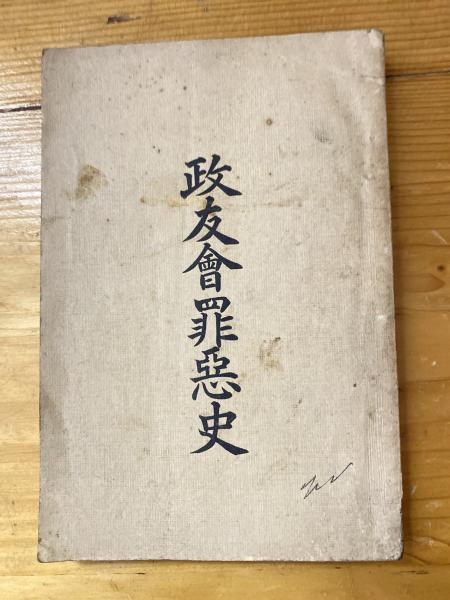 政友會罪惡史